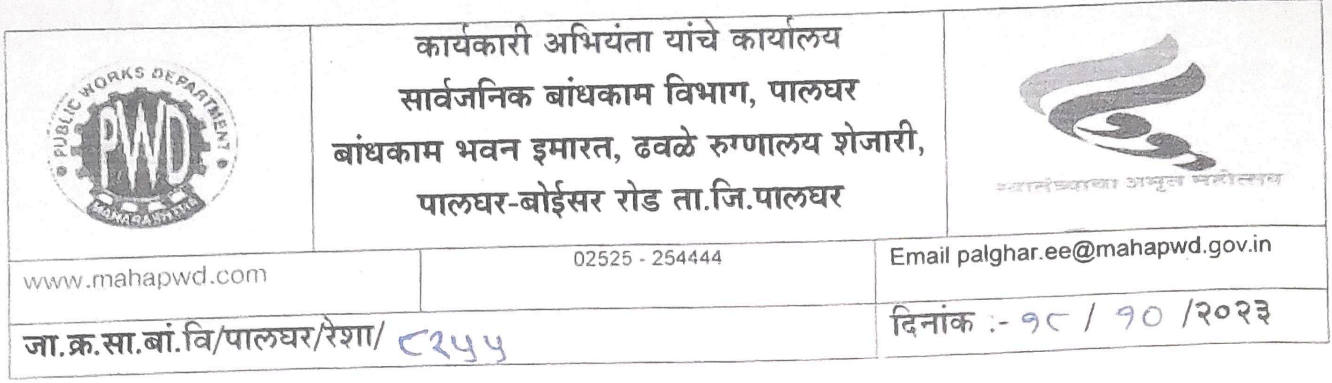 PUBLIC WORKS DEPARTMENT
PWD
MAHARASHTRA
कार्यकारी अभियंता यांचे कार्यालय
सार्वजनिक बांधकाम विभाग, पालघर
बांधकाम भवन इमारत, ढवळे रुग्णालय शेजारी,
पालघर-बोईसर रोड ता.जि.पालघर
आझादी का अमृत महोत्सव
www.mahapwd.com
02525 - 254444
Email palghar.ee@mahapwd.gov.in
जा.क्र.सा.बां.वि/पालघर/रेशा/ ८२५५
दिनांक :- १८ / १० /२०२३